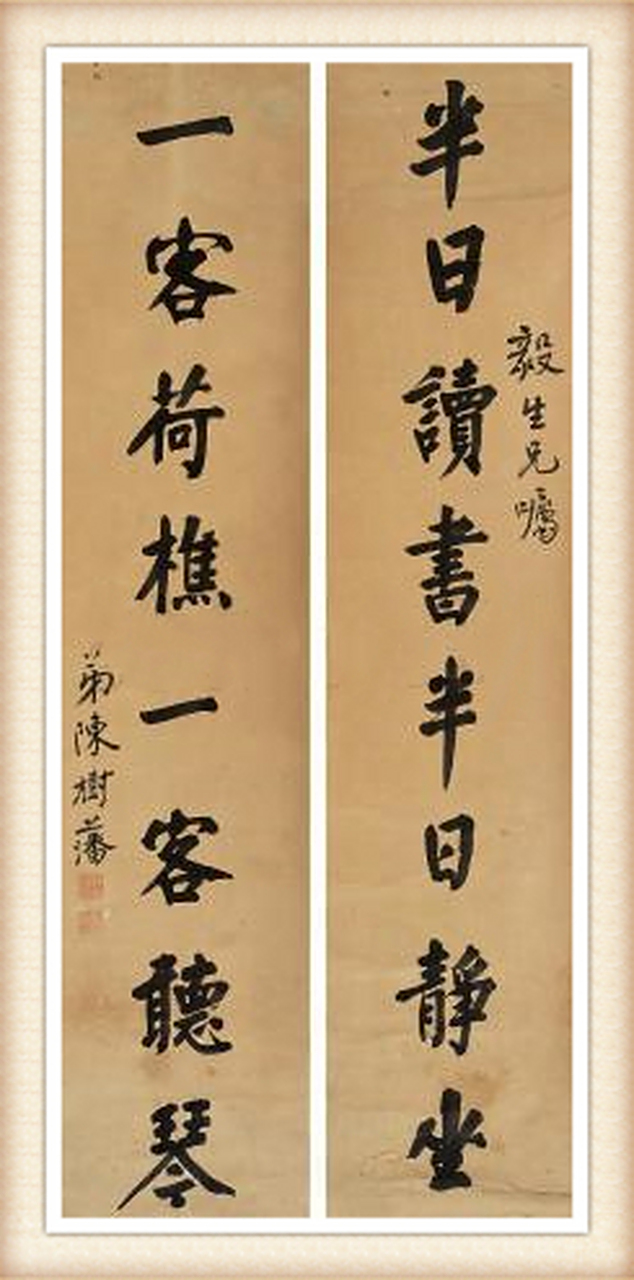 毅生兄囑
半日讀書半日靜坐
一客荷樵一客聽琴
弟陳樹藩